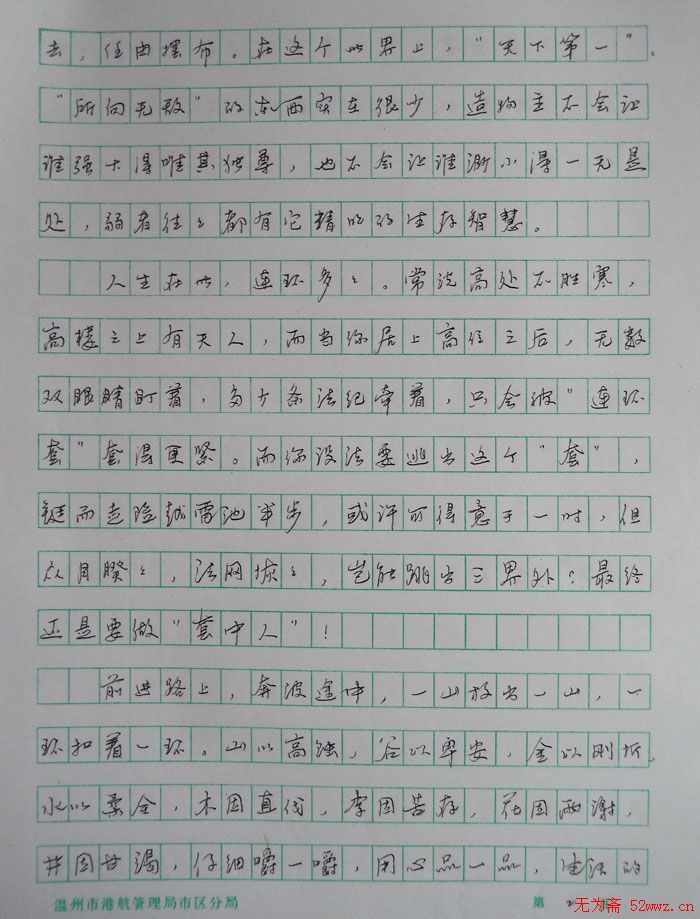 去，任由摆布。在这个世界上，“天下第一”、
“所向无敌”的东西实在很少，造物主不会让
谁强大得唯其独尊，也不会让谁渺小得一无是
处，弱者往々都有它精明的生存智慧。
人生在世，连环多々。常说高处不胜寒，
高楼之上有天人，而当你居上高位之后，无数
双眼睛盯着，多少条法纪牵着，只会被“连环
套”套得更紧。而你设法要逃出这个“套”，
铤而走险越雷池半步，或许可得意于一时，但
众目睽々，法网恢々，岂能跳出三界外？最终
还是要做“套中人”！
前进路上，奔波途中，一山放出一山，一
环扣着一环。山以高蚀，谷以卑安，金以刚折，
水以柔全，木因直伐，李因苦存，花因雨谢，
井因甘渴，仔细嚼一嚼，用心品一品，生活的
温州市港航管理局市区分局 第 2
无为斋 52wwz.cn